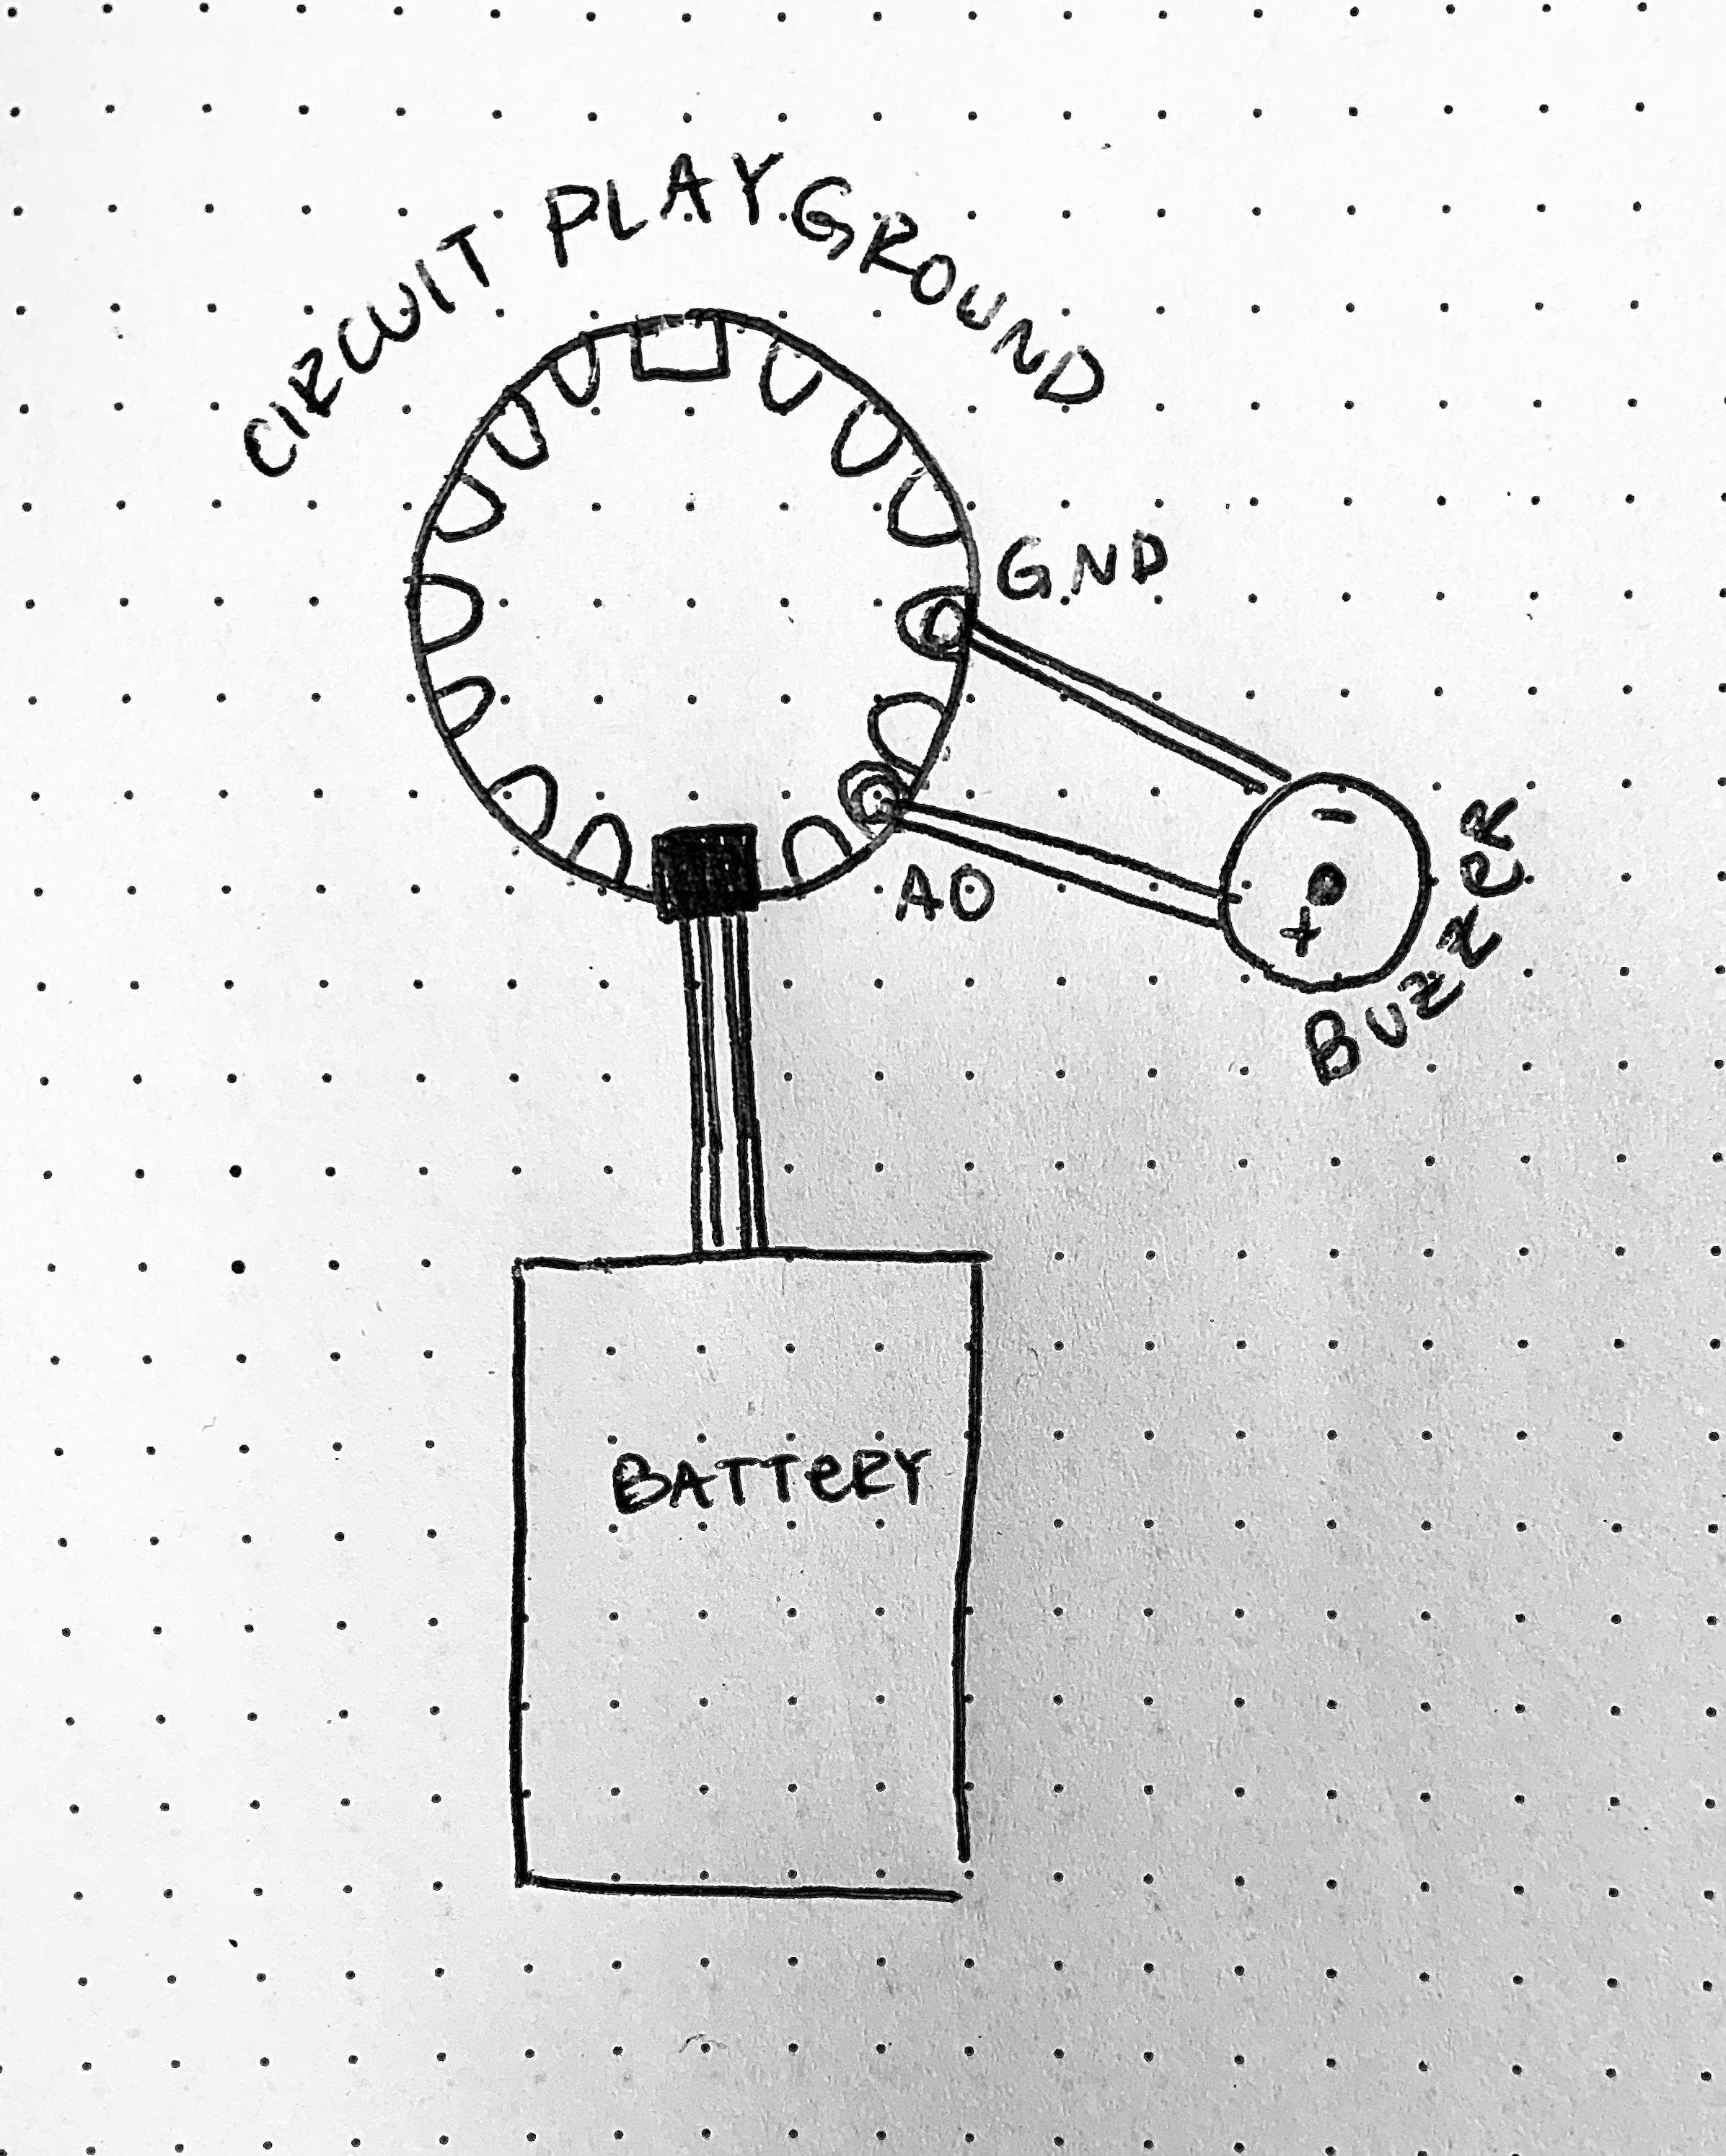 CIRCUIT PLAYGROUND
GND
-
+
A0
BUZZER
BATTERY